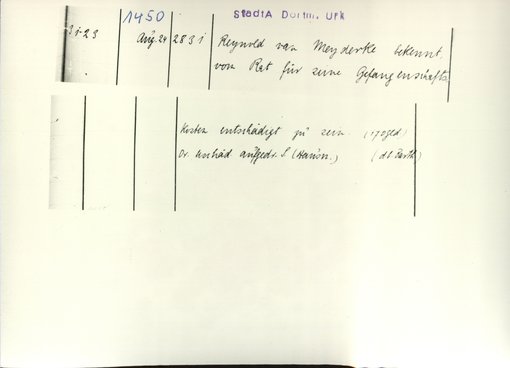 1450 StadtA Dortm. Urk
3 i-23 Aug. 24 2831 Reynold van Meyderke bekennt,
vom Rat für seine Gefangenschafts
Kosten entschädigt zu sein. (170 gld)
Or. beschäd aufgedr. S